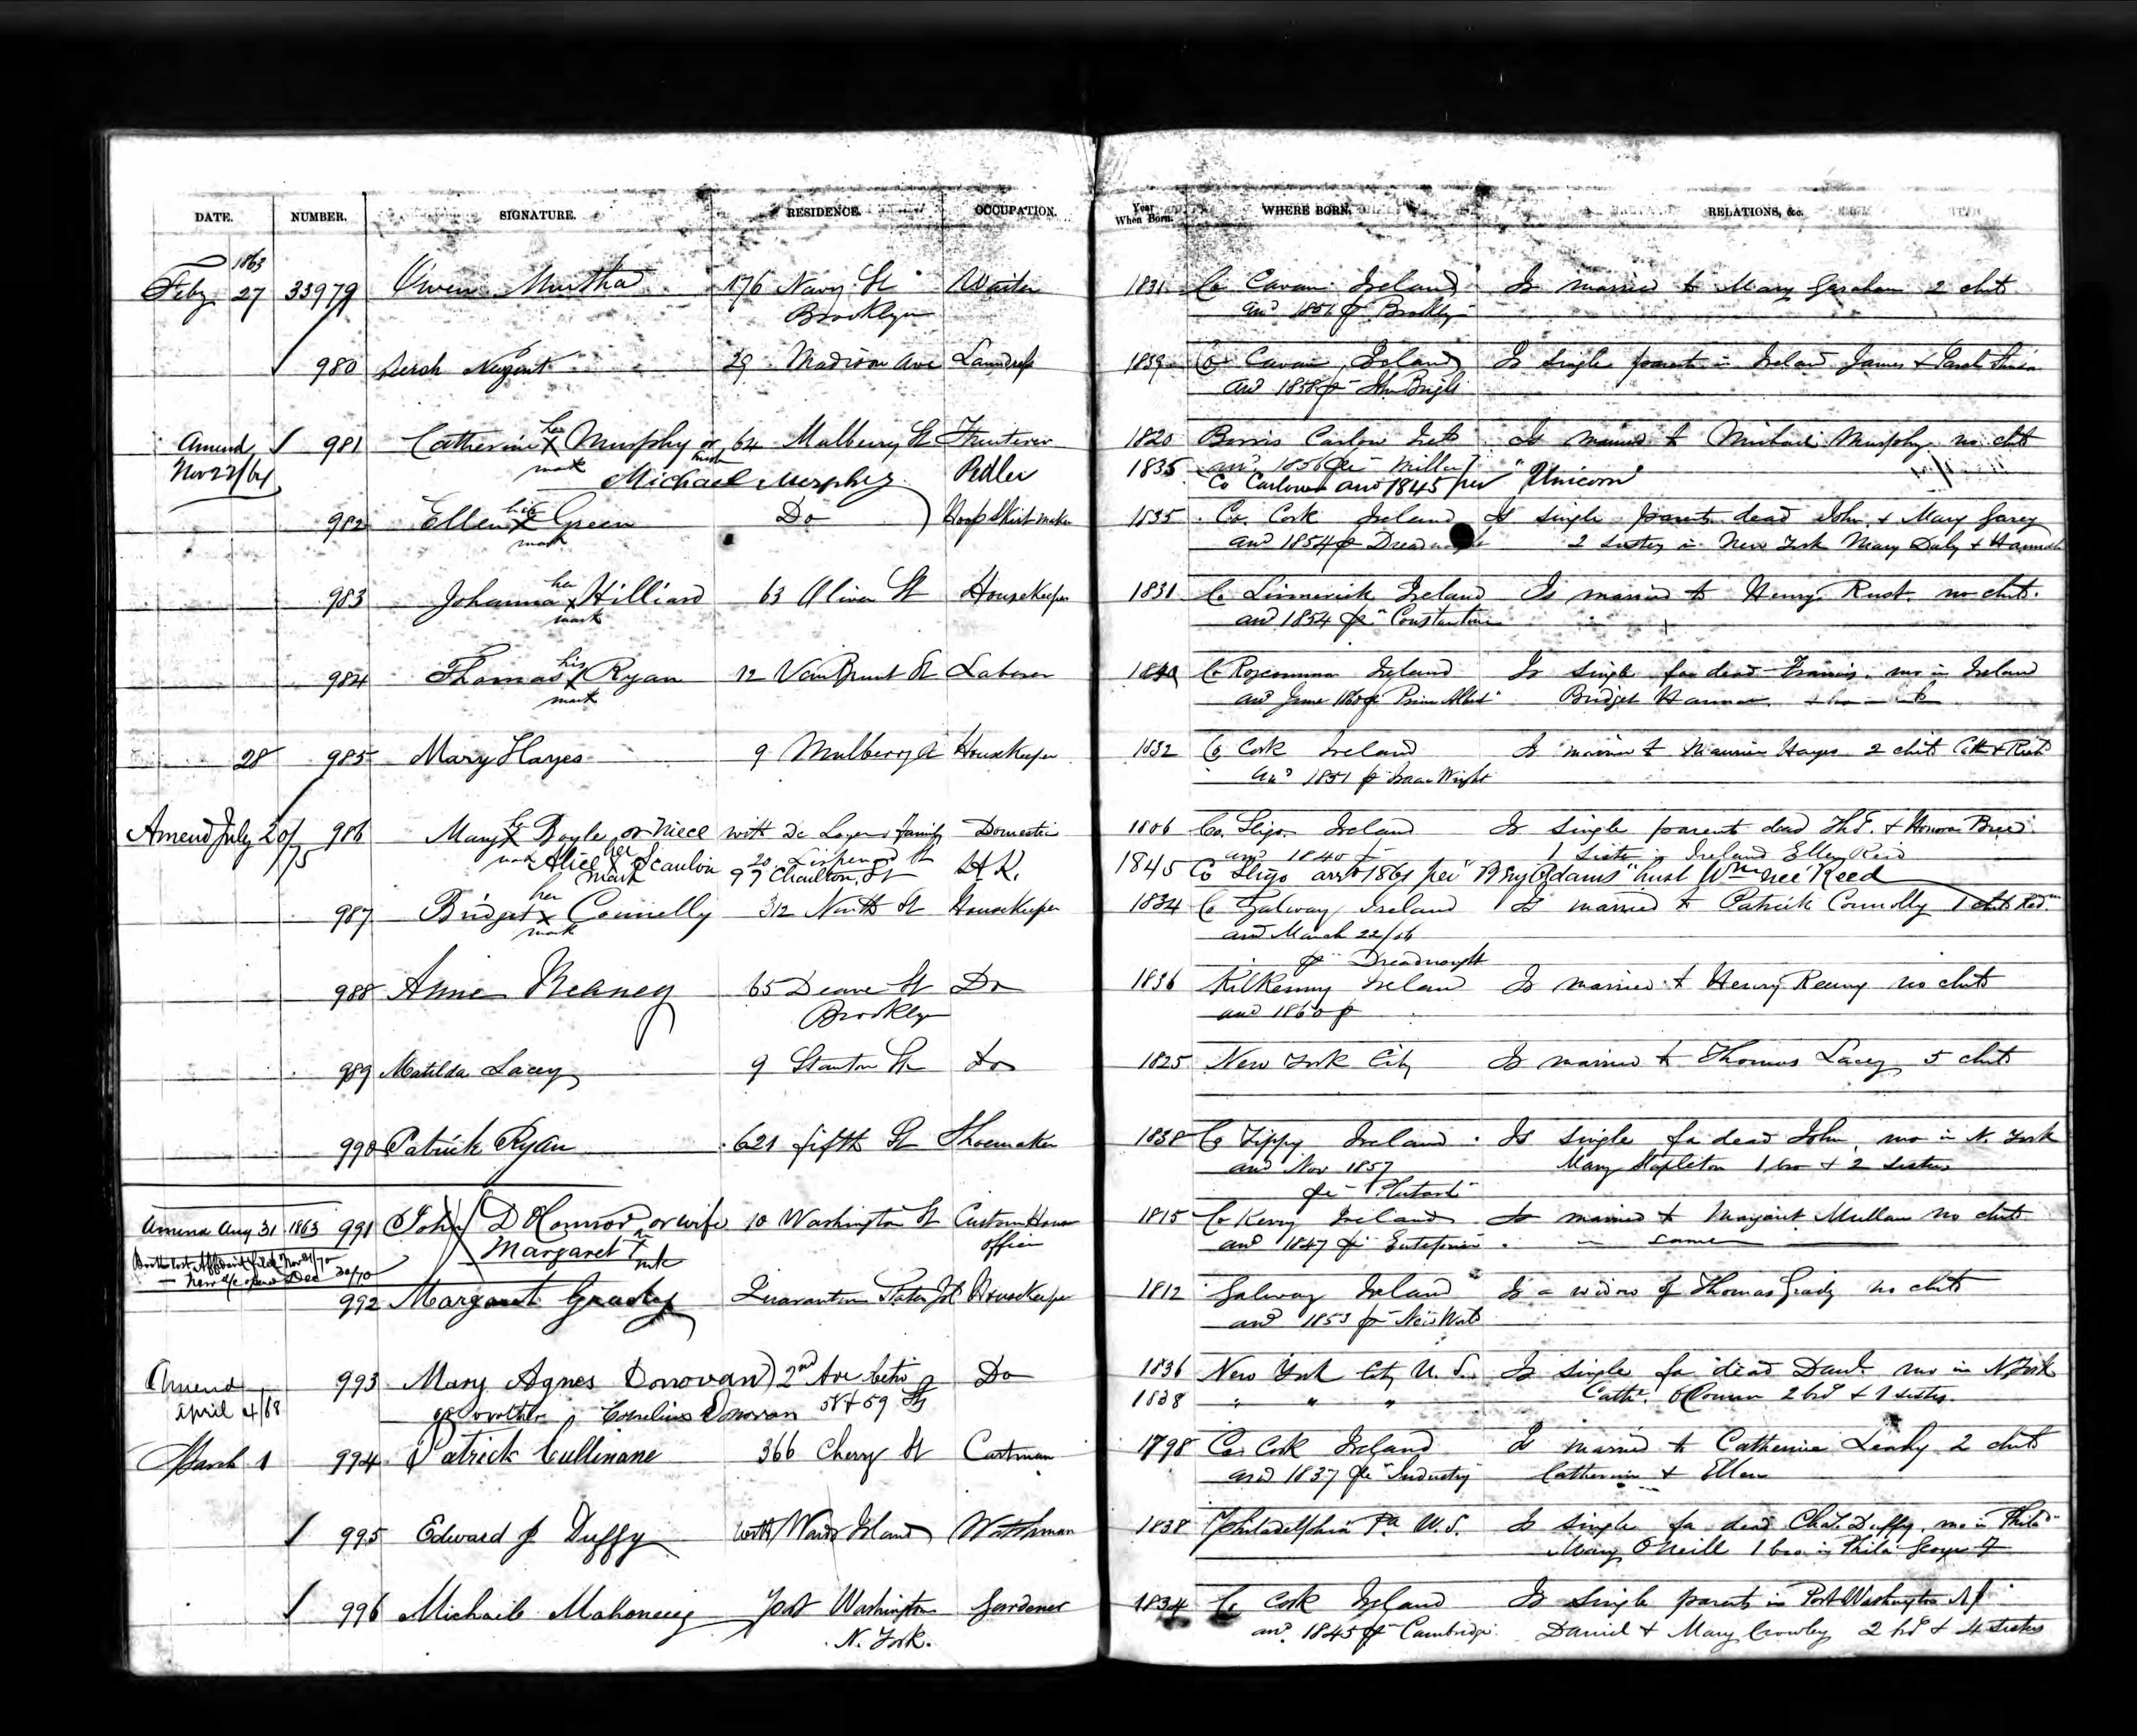 DATE. NUMBER. SIGNATURE. RESIDENCE. OCCUPATION. Year When Born. WHERE BORN. RELATIONS, &c.
1863
Feby 27 33979 Owen Murtha 176 Navy St Waiter 1831 Co Cavan Ireland Is married to Mary 2 chn
Brooklyn arrd 1851 pr Brooklyn
980 Nugent 29 Madison Ave Laundress 1839 Co Cavan Ireland Is single parents in Ireland James & Sarah
arrd 1858 pr John Bright
Amend 981 Catherine her X mark Murphy or 64 Mulberry St Fruiterer 1820 Borris Carlow Is married to Michael Murphy no chn
Nov 22/64 husb Michael Murphy Pedler 1835 arrd 1856 per
Co Carlow arrd 1845 per "Unicorn"
982 Ellen X mark Green Do Hoop Skirt maker 1835 Co. Cork Ireland Is single parents dead John & Mary
arrd 1854 pr Dreadnought 2 sisters in New York Mary Daly & Hannah
983 Johanna her X mark Hilliard 63 Oliver St Housekeeper 1831 Co Limerick Ireland Is married to Henry Rust no chn.
arrd 1854 pr "Constantine
984 Thomas his X mark Ryan 72 Van Brunt St Laborer 1840 Co Roscommon Ireland Is single fa dead Francis mo in Ireland
arrd June 1860 pr Prince Albert" Bridget
28 985 Mary Hayes 9 Mulberry St Housekeeper 1832 Co Cork Ireland Is married to Maurice Hayes 2 chn Cath & Richd
arrd 1851 pr Isaac Wright
Amend July 20/75 986 Mary X Boyle or niece with family Domestic 1806 Co. Sligo Ireland Is single parents dead & Honora
mark Alice her X mark Scanlon 20 Lispenard St arrd 1840 1 Sister in Ireland Ellen Reid
97 Charlton St H.K. 1845 Co Sligo arrd 1861 per husb Wm nee Reed
987 Bridget her X mark Connelly 312 Ninth St Housekeeper 1834 Co Galway Ireland Is married to Patrick Connolly 1 chn
arrd March 22/56
pr Dreadnought
988 Annie 65 Deane St Do 1836 Kilkenny Ireland Is married to Henry no chn
Brooklyn arrd 1860 pr
989 Matilda Lacey 9 Stanton St do 1825 New York City Is married to Thomas Lacey 5 chn
990 Patrick Ryan 621 fifth St Shoemaker 1838 Co Tippy Ireland Is single fa dead John, mo in N. York
arrd Nov 1857 Mary Stapleton 1 bro & 2 sisters
pr Plutarch"
Amend Aug 31 1863 991 John D OConnor or wife 10 Washington St Custom House 1815 Co Kerry Ireland Is married to Margaret Mullane no chn
Margaret X mk officer arrd 1847 pr Enterprise same
Book lost Affidavit filed Nov 21/70
New a/c opened Dec 20/70
992 Margaret Grady Quarantine Staten Isl Housekeeper 1812 Galway Ireland Is a widow of Thomas Grady no chn
arrd 1853 pr
Amend 993 Mary Agnes Donovan 2nd Ave betw Do 1836 New York City U. S. Is single fa dead Danl. mo in N York
April 4/68 or brother Cornelius Donovan 58 & 59 St 1838 " " " Cathe. 2 bro & 1 sister.
March 1 994 Patrick Cullinane 366 Cherry St Cartman 1798 Co. Cork Ireland Is married to Catherine Leahy 2 chn
arrd 1837 pr "Industry Catherine & Ellen
995 Edward J Duffy Wards Island Watchman 1838 Philadelphia Pa U.S. Is single fa dead Chas. Duffy, mo in Phila
Mary O'Neill 1 bro in Phila George
996 Michael Mahoney Port Washington Gardener 1834 Co Cork Ireland Is single parents in Port Washington
N. York. arrd. 1845 pr Cambridge Daniel & Mary Crowley 2 bro & 4 sisters